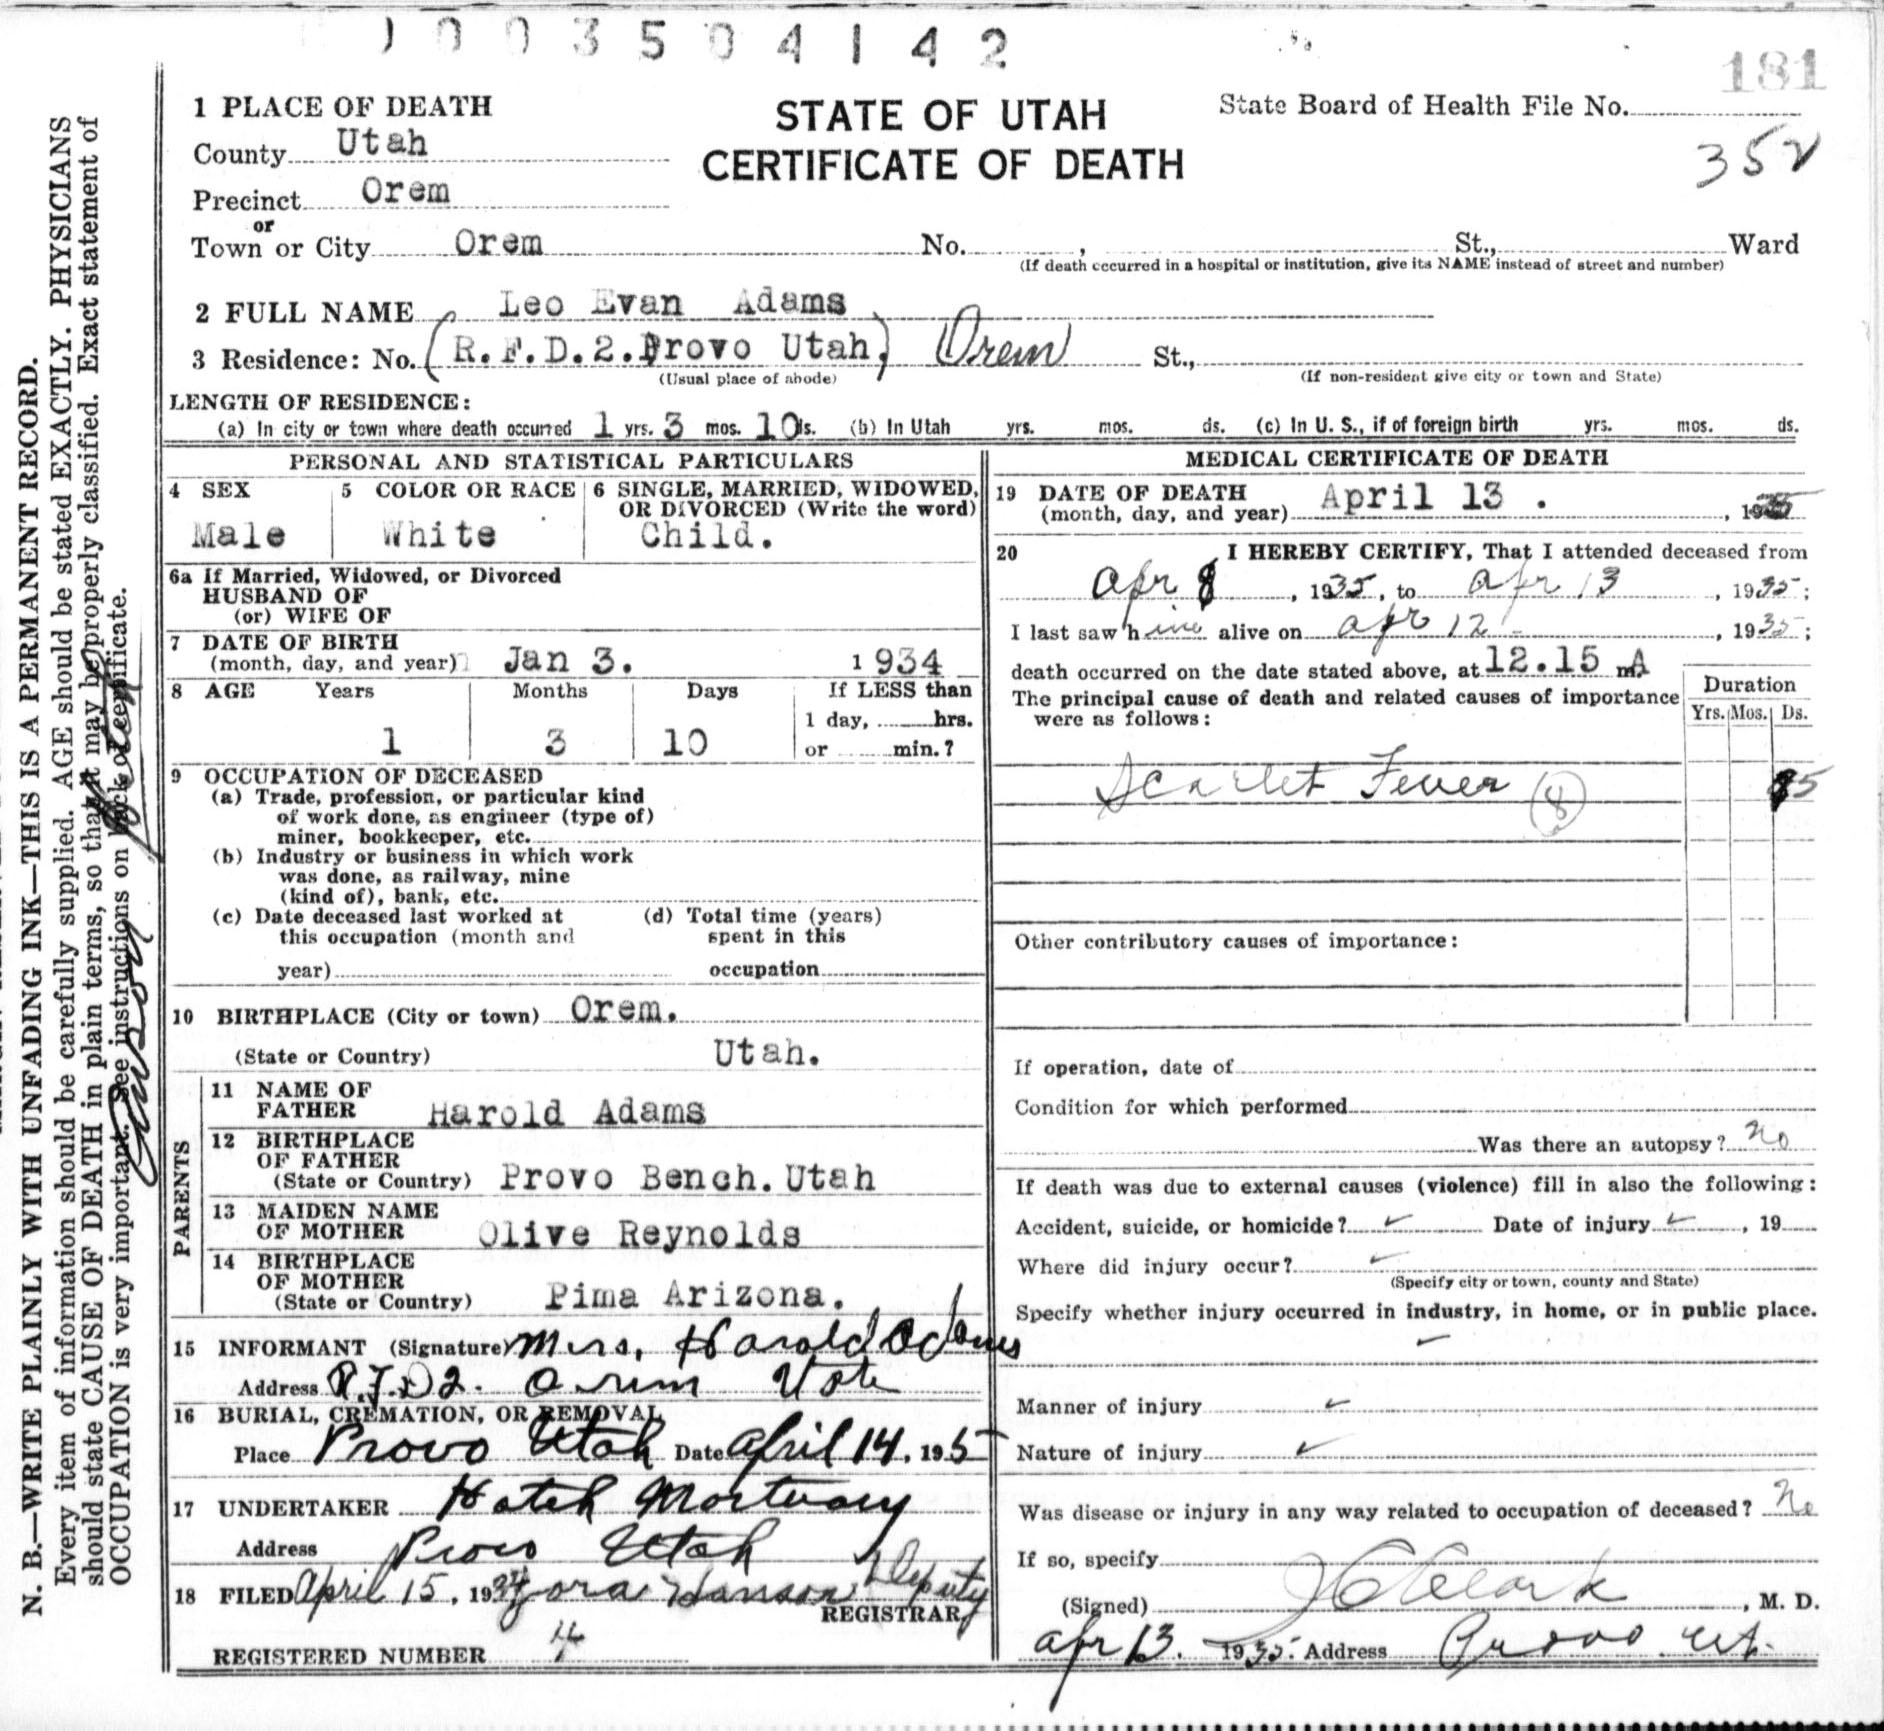 1003504142
181
1 PLACE OF DEATH
STATE OF UTAH
CERTIFICATE OF DEATH
State Board of Health File No.
352
County Utah
Precinct Orem
or
Town or City Orem No. , St., Ward
(If death occurred in a hospital or institution, give its NAME instead of street and number)
2 FULL NAME Leo Evan Adams
3 Residence: No. (R.F.D.2. Provo Utah) Orem St.,
(Usual place of abode) (If non-resident give city or town and State)
LENGTH OF RESIDENCE:
(a) In city or town where death occurred 1 yrs. 3 mos. 10 ds. (b) In Utah yrs. mos. ds. (c) In U. S., if of foreign birth yrs. mos. ds.
PERSONAL AND STATISTICAL PARTICULARS
4 SEX
Male
5 COLOR OR RACE
White
6 SINGLE, MARRIED, WIDOWED,
OR DIVORCED (Write the word)
Child.
6a If Married, Widowed, or Divorced
HUSBAND OF
(or) WIFE OF
7 DATE OF BIRTH
(month, day, and year) Jan 3. 1934
8 AGE Years Months Days If LESS than
1 day, hrs.
1 3 10 or min.?
9 OCCUPATION OF DECEASED
(a) Trade, profession, or particular kind
of work done, as engineer (type of)
miner, bookkeeper, etc.
(b) Industry or business in which work
was done, as railway, mine
(kind of), bank, etc.
(c) Date deceased last worked at
this occupation (month and
year)
(d) Total time (years)
spent in this
occupation
10 BIRTHPLACE (City or town) Orem.
(State or Country) Utah.
PARENTS
11 NAME OF
FATHER Harold Adams
12 BIRTHPLACE
OF FATHER
(State or Country) Provo Bench. Utah
13 MAIDEN NAME
OF MOTHER Olive Reynolds
14 BIRTHPLACE
OF MOTHER
(State or Country) Pima Arizona.
15 INFORMANT (Signature) Mrs. Harold Adams
Address R.F.D 2. Orem Utah
16 BURIAL, CREMATION, OR REMOVAL
Place Provo Utah Date April 14, 1935
17 UNDERTAKER Hatch Mortuary
Address Provo Utah
18 FILED April 15, 19 Zora Hanson Deputy
REGISTRAR
REGISTERED NUMBER 4
MEDICAL CERTIFICATE OF DEATH
19 DATE OF DEATH
(month, day, and year) April 13 . , 1935
20 I HEREBY CERTIFY, That I attended deceased from
Apr 8 , 1935, to Apr 13 , 1935;
I last saw him alive on Apr 12 , 1935;
death occurred on the date stated above, at 12.15 m. A
The principal cause of death and related causes of importance
were as follows:
Duration
Yrs. Mos. Ds.
Scarlet Fever (8) 5
Other contributory causes of importance:
If operation, date of
Condition for which performed
Was there an autopsy? No
If death was due to external causes (violence) fill in also the following:
Accident, suicide, or homicide? ✓ Date of injury ✓ , 19
Where did injury occur? ✓
(Specify city or town, county and State)
Specify whether injury occurred in industry, in home, or in public place.
Manner of injury ✓
Nature of injury ✓
Was disease or injury in any way related to occupation of deceased? No
If so, specify
(Signed) J C Clark , M. D.
Apr 13. 1935. Address Provo Ut.
N. B.—WRITE PLAINLY WITH UNFADING INK—THIS IS A PERMANENT RECORD.
Every item of information should be carefully supplied. AGE should be stated EXACTLY. PHYSICIANS
should state CAUSE OF DEATH in plain terms, so that it may be properly classified. Exact statement of
OCCUPATION is very important. See instructions on back of certificate.